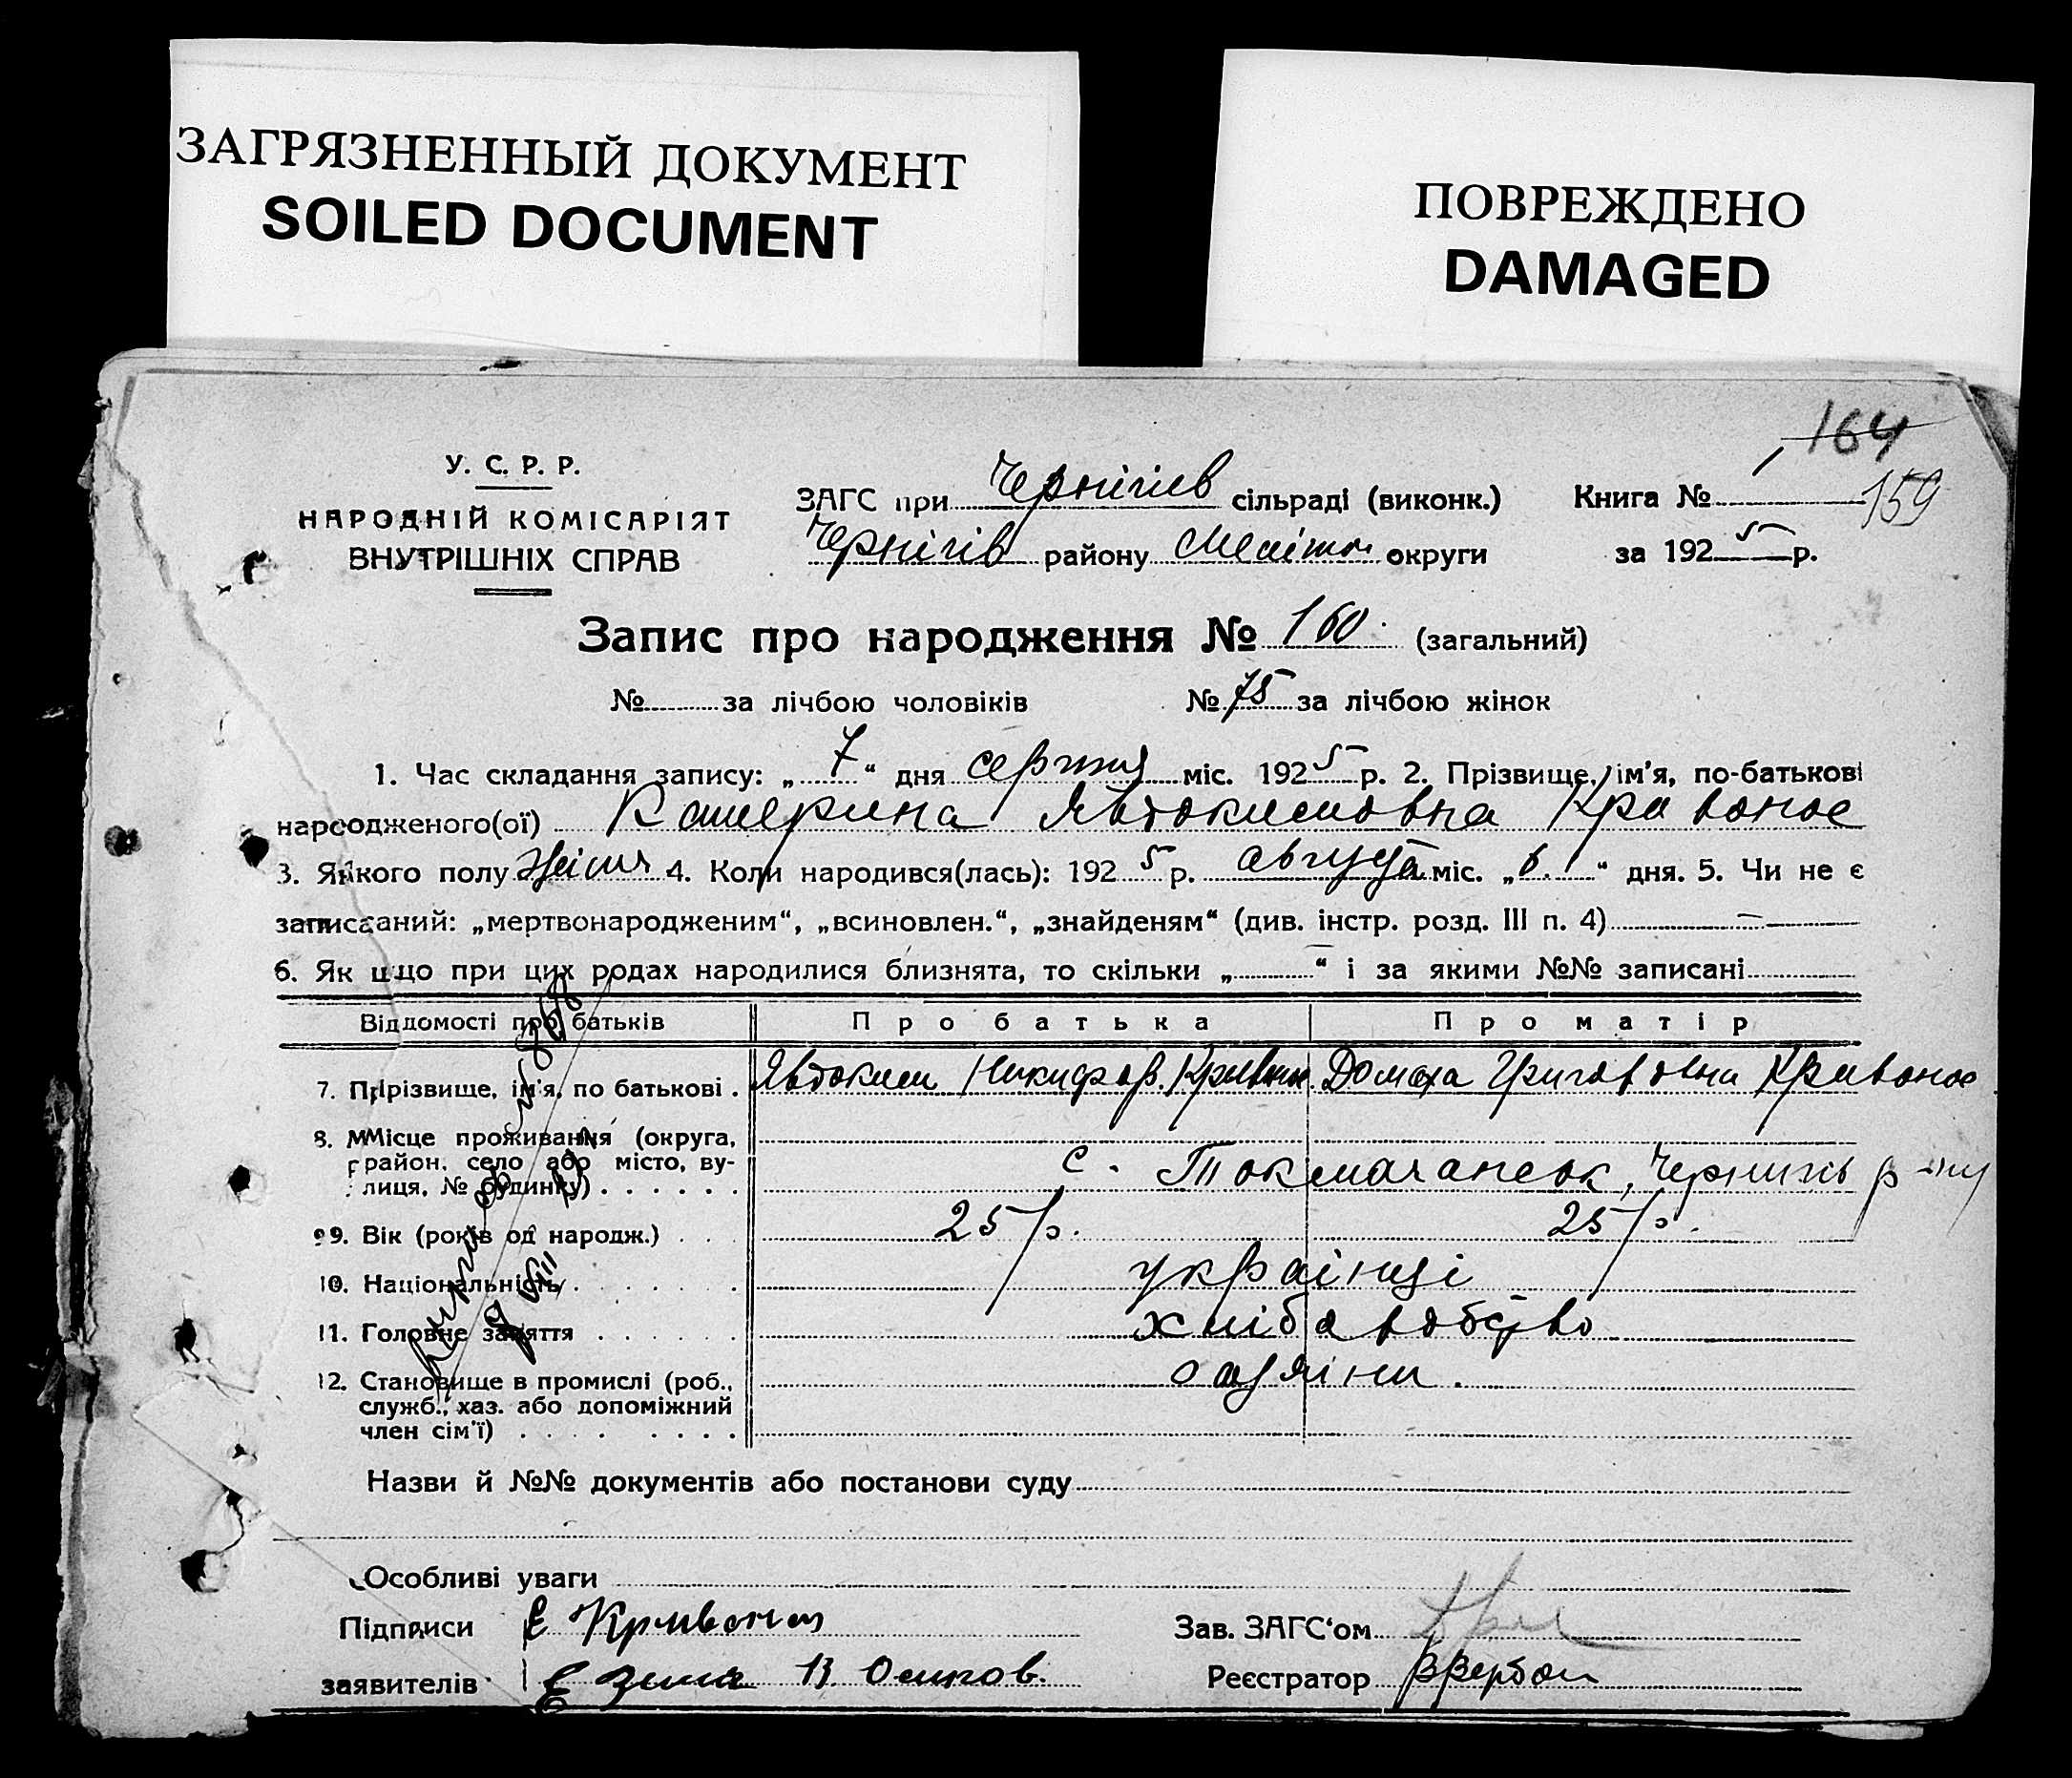 ЗАГРЯЗНЕННЫЙ ДОКУМЕНТ
SOILED DOCUMENT
ПОВРЕЖДЕНО
DAMAGED
164
У. С. Р. Р.
НАРОДНІЙ КОМІСАРІЯТ
ВНУТРІШНІХ СПРАВ
ЗАГС при Чернігів сільраді (виконк.) Книга № 159
Чернігів району Меліт округи за 1925 р.
Запис про народження № 160. (загальний)
№ за лічбою чоловіків № 75 за лічбою жінок
1. Час складання запису: „7“ дня серпня міс. 1925 р. 2. Прізвище, ім'я, по-батькові
народженого(ої) Катерина Явтокимовна Кривонос
3. Якого полу жіноч 4. Коли народився(лась): 1925 р. августа міс. „6.“ дня. 5. Чи не є
записаний: „мертвонародженим“, „всиновлен.“, „знайденям“ (див. інстр. розд. III п. 4) —
6. Як що при цих родах народилися близнята, то скільки „—“ і за якими №№ записані
Відомості про батьків Про батька Про матір
7. Прізвище, ім'я, по батькові . Явтоким Никифор. Кривон. Домаха Григоровна Кривонос
8. Місце проживання (округа,
район, село або місто, ву-
лиця, № будинку) . . . . . . с. Токмачанськ, Чернигів р-ну
9. Вік (років од народж.) . . . 25 р. 25 р.
10. Національність . . . . . . українці
11. Головне заняття . . . . . . хліборобство
12. Становище в промислі (роб.,
служб., хаз. або допоміжний
член сім'ї) . . . . . . . .
Назви й №№ документів або постанови суду
Особливі уваги
Підписи Е Кривонос Зав. ЗАГС‘ом
заявителів Е Зима В. Осипов. Реєстратор